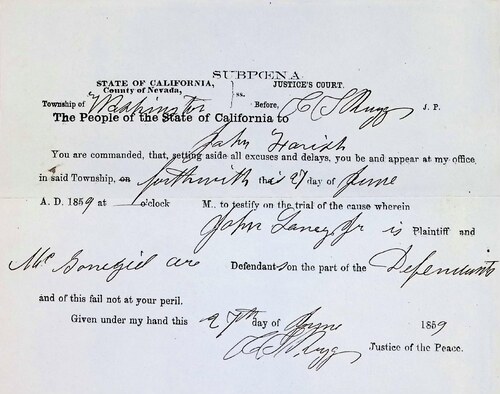 SUBPŒNA
STATE OF CALIFORNIA, } ss. JUSTICE'S COURT.
County of Nevada,
Township of Washington Before, C S Rugg J. P.
The People of the State of California to
John Farish
You are commanded, that, setting aside all excuses and delays, you be and appear at my office
in said Township, on forthwith this 27 day of June
A. D. 1859 at o'clock M., to testify on the trial of the cause wherein
John Jr is Plaintiff and
Mc are Defendants on the part of the Defendants
and of this fail not at your peril.
Given under my hand this 27th day of June 1859
Rugg Justice of the Peace.